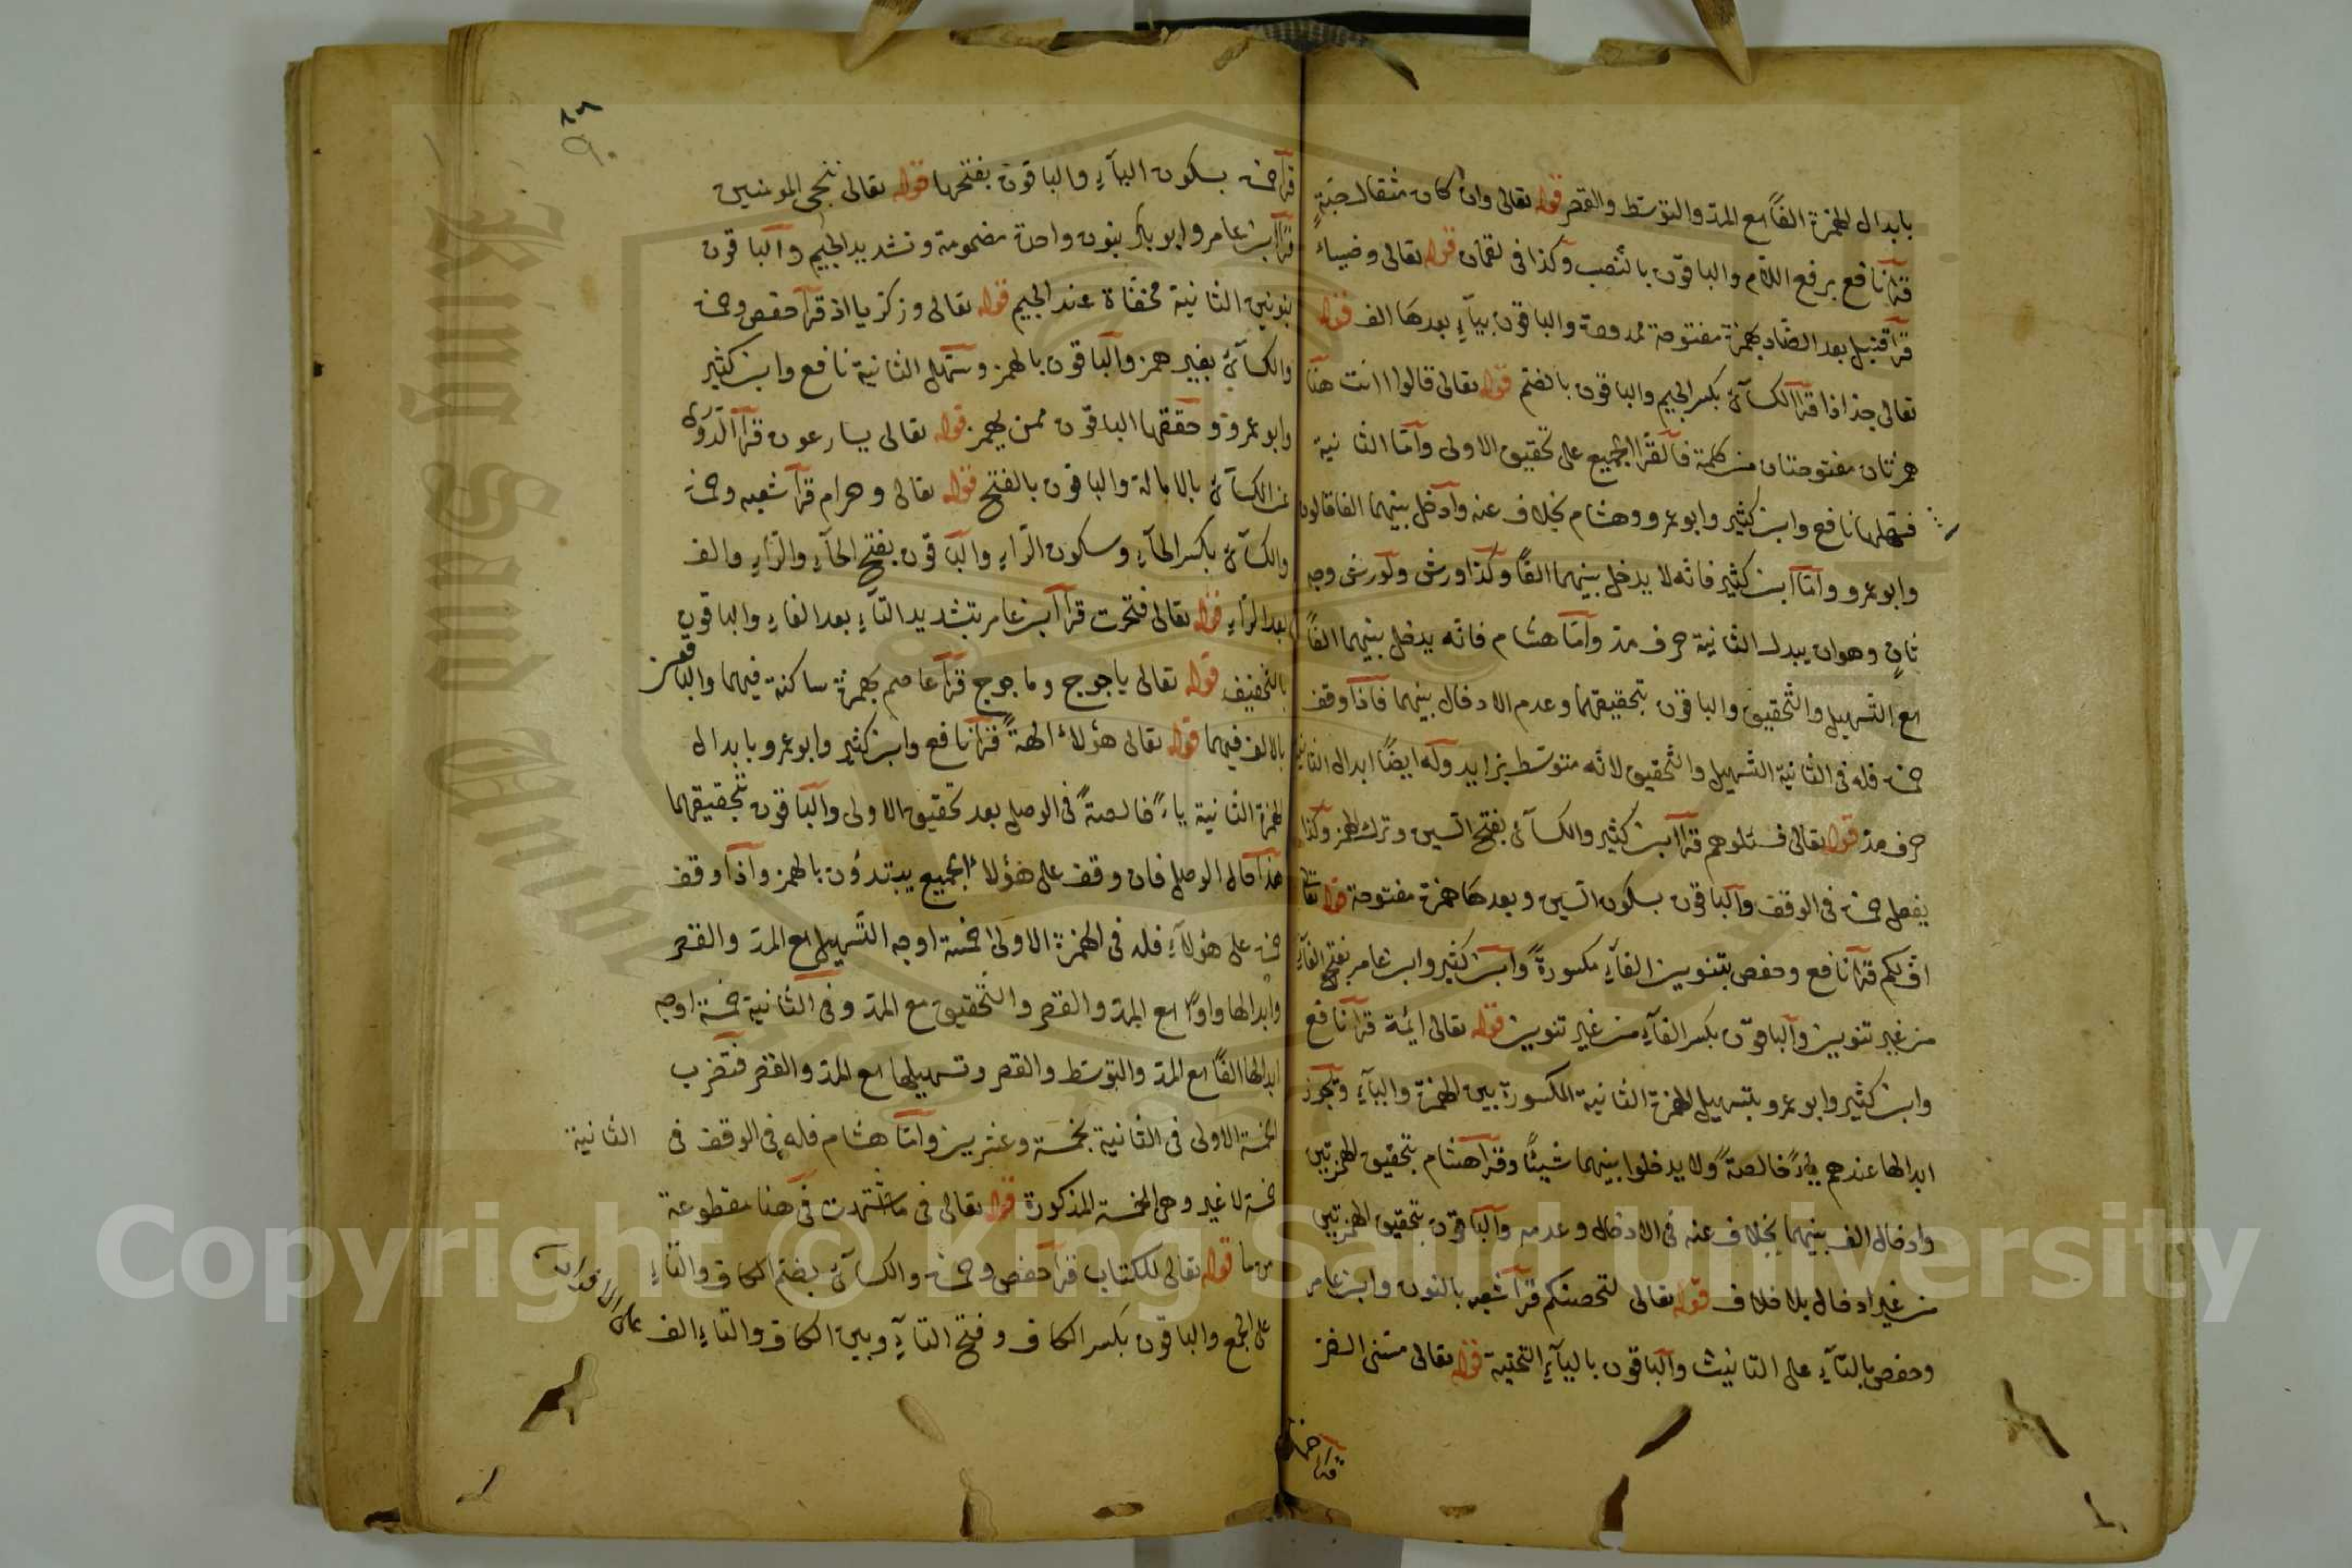 بابدال الهمزة الفًا مع المد والتوسّط والقصر قوله تعالى وان كان مثقال حبّةٍ
قرأ نافع برفع اللام والباقون بالنّصب وكذا في لقمان قوله تعالى وضياء
قرأ قنبل بعد الضّاد بهمزة مفتوحة ممدودة والباقون بياءٍ بعدها الف قوله
تعالى جذاذا قرأ الكسآئ بكسر الجيم والباقون بالضم قوله تعالى قالوا اانت هنا
همزتان مفتوحتان من كلمة فالقرّا الجميع على تحقيق الاولى وامّا الثانية
فسهلها نافع وابن كثير وابو عمرو وهشام بخلاف عنه وادخل بينهما الفا قالون
وابو عمرو وامّا ابن كثير فانه لا يدخل بينهما الفًا وكذا ورش ولورش وجه
ثانٍ وهو ان يبدل الثانية حرف مد وامّا هشام فانّه يدخل بينهما الفًا
مع التّسهيل والتّحقيق والباقون بتحقيقهما وعدم الادخال بينهما فاذا وقف
حمزة فله في الثانية التّسهيل والتّحقيق لانّه متوسّط بزايد وله ايضًا ابدال الثانية
حرف مدّ قوله تعالى فسئلوهم قرأ ابن كثير والكسآئ بفتح السين وترك الهمز وكذا
يفعل حمزة في الوقف والباقون بسكون السّين وبعدها همزة مفتوحة قوله تعالى
افّ لكم قرأ نافع وحفص بتنوين الفآء مكسورةً وابن كثير وابن عامر بفتح الفآء
من غير تنوين والباقون بكسر الفآء من غير تنوين قوله تعالى ائمة قرأ نافع
وابن كثير وابو عمرو بتسهيل الهمزة الثانية المكسورة بين الهمزة واليآء ويجوز
ابدالها عندهم يآءً خالصةً ولا يدخلوا بينهما شيئًا وقرأ هشام بتحقيق الهمزتين
وادخال الف بينهما بخلاف عنه في الادخال وعدمه والباقون بتحقيق الهمزتين
من غير ادخال بلا خلاف قوله تعالى لتحصنكم قرأ شعبه بالنون وابن عامر
وحفص بالتآء على التانيث والباقون باليآء التحتية قوله تعالى مسّنى الضر
قرأ حمزة
٨٩
٩٠
قرأ حمزة بسكون اليآء والباقون بفتحها قوله تعالى ننجى المومنين
قرأ ابن عامر وابو بكر بنون واحدة مضمومة وتشديد الجيم والباقون
بنونين الثانية مخفّاة عند الجيم قوله تعالى وزكريا اذ قرأ حفص وحمزة
والكسآئ بغير همز والباقون بالهمز وسهّل الثانية نافع وابن كثير
وابو عمرو وحققها الباقون ممن يهمز قوله تعالى يسارعون قرأ الدّورى
عن الكسآئ بالامالة والباقون بالفتح قوله تعالى وحرام قرأ شعبه وحمزة
والكسآئ بكسر الحآء وسكون الرّاء والباقون بفتح الحآء والرّاء والف
بعد الرّاء قوله تعالى فتحت قرأ ابن عامر بتشديد التآء بعد الفاء والباقون
بالتّخفيف قوله تعالى ياجوج وماجوج قرأ عاصم بهمزة ساكنة فيهما والباقون
بالالف فيهما قوله تعالى هؤلاء الهةً قرأ نافع وابن كثير وابو عمرو بابدال
الهمزة الثانية ياءً خالصةً في الوصل بعد تحقيق الاولى والباقون بتحقيقهما
هذا حال الوصل فان وقف على هؤلاء الجميع يبتدؤن بالهمز واذا وقف
حمزة على هؤلآء فله في الهمزة الاولى خمسة اوجه التّسهيل مع المدّ والقصر
وابدالها واوًا مع المدّ والقصر والتّحقيق مع المدّ وفى الثانية خمسة اوجه
ابدالها الفًا مع المدّ والتوسّط والقصر وتسهيلها مع المدّ والقصر فتضرب
الخمسة الاولى في الثانية بخمسة وعشرين وامّا هشام فله في الوقف في الثانية
خمسة لا غير وهى الخمسة المذكورة قوله تعالى في ما اشتهت في هنا مقطوعة
من ما قوله تعالى للكتاب قرأ حفص وحمزة والكسآئ بضم الكاف والتاء
على الجمع والباقون بكسر الكاف وفتح التآء وبين الكاف والتاء الف على الافراد